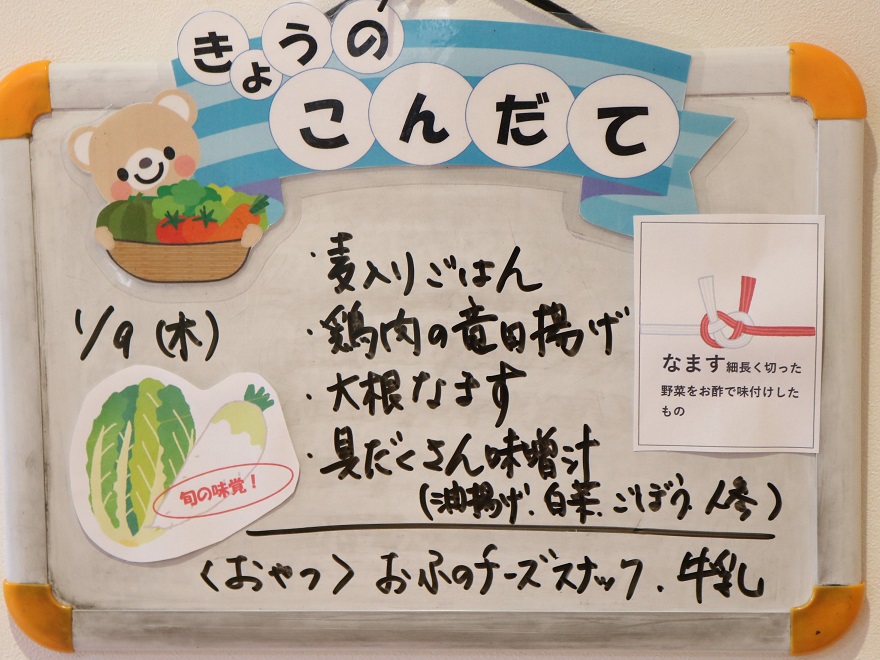 きょうの
こんだて
1/9(木)
・麦入りごはん
・鶏肉の竜田揚げ
・大根なます
・具だくさん味噌汁
(油揚げ、白菜、ごぼう、人参)
<おやつ>おふのチーズスナック、牛乳
旬の味覚!
なます細長く切った
野菜をお酢で味付けした
もの